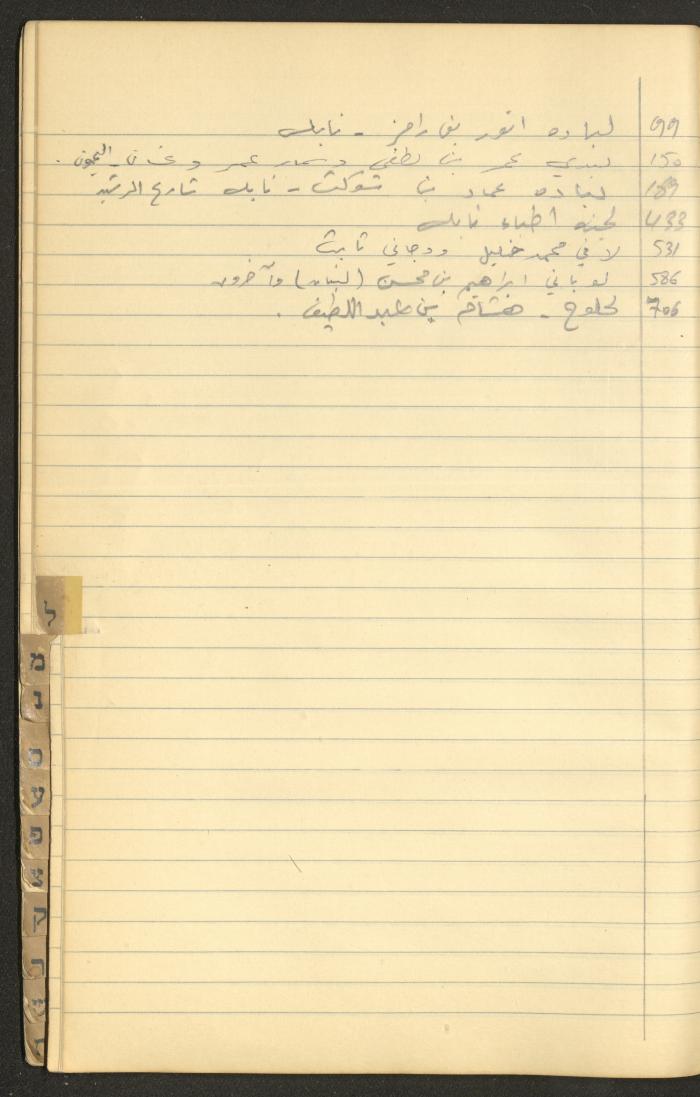 99 لباده انور بن رامز - نابلس
150 لبدي عمر بن لطفي وسمار عمر وغسان -
189 لباده عماد بن شوكت - نابلس شارع الرشيد
433 لجنة اطباء نابلس
531 لافي محمد خليل ودجاني ثابت
586 لوباني ابراهيم بن محسن (لبنان) وآخرون
706 لحلوح - هشام بن عبد اللطيف .
ל
מ
נ
ס
ע
פ
צ
ק
ר
ש
ת